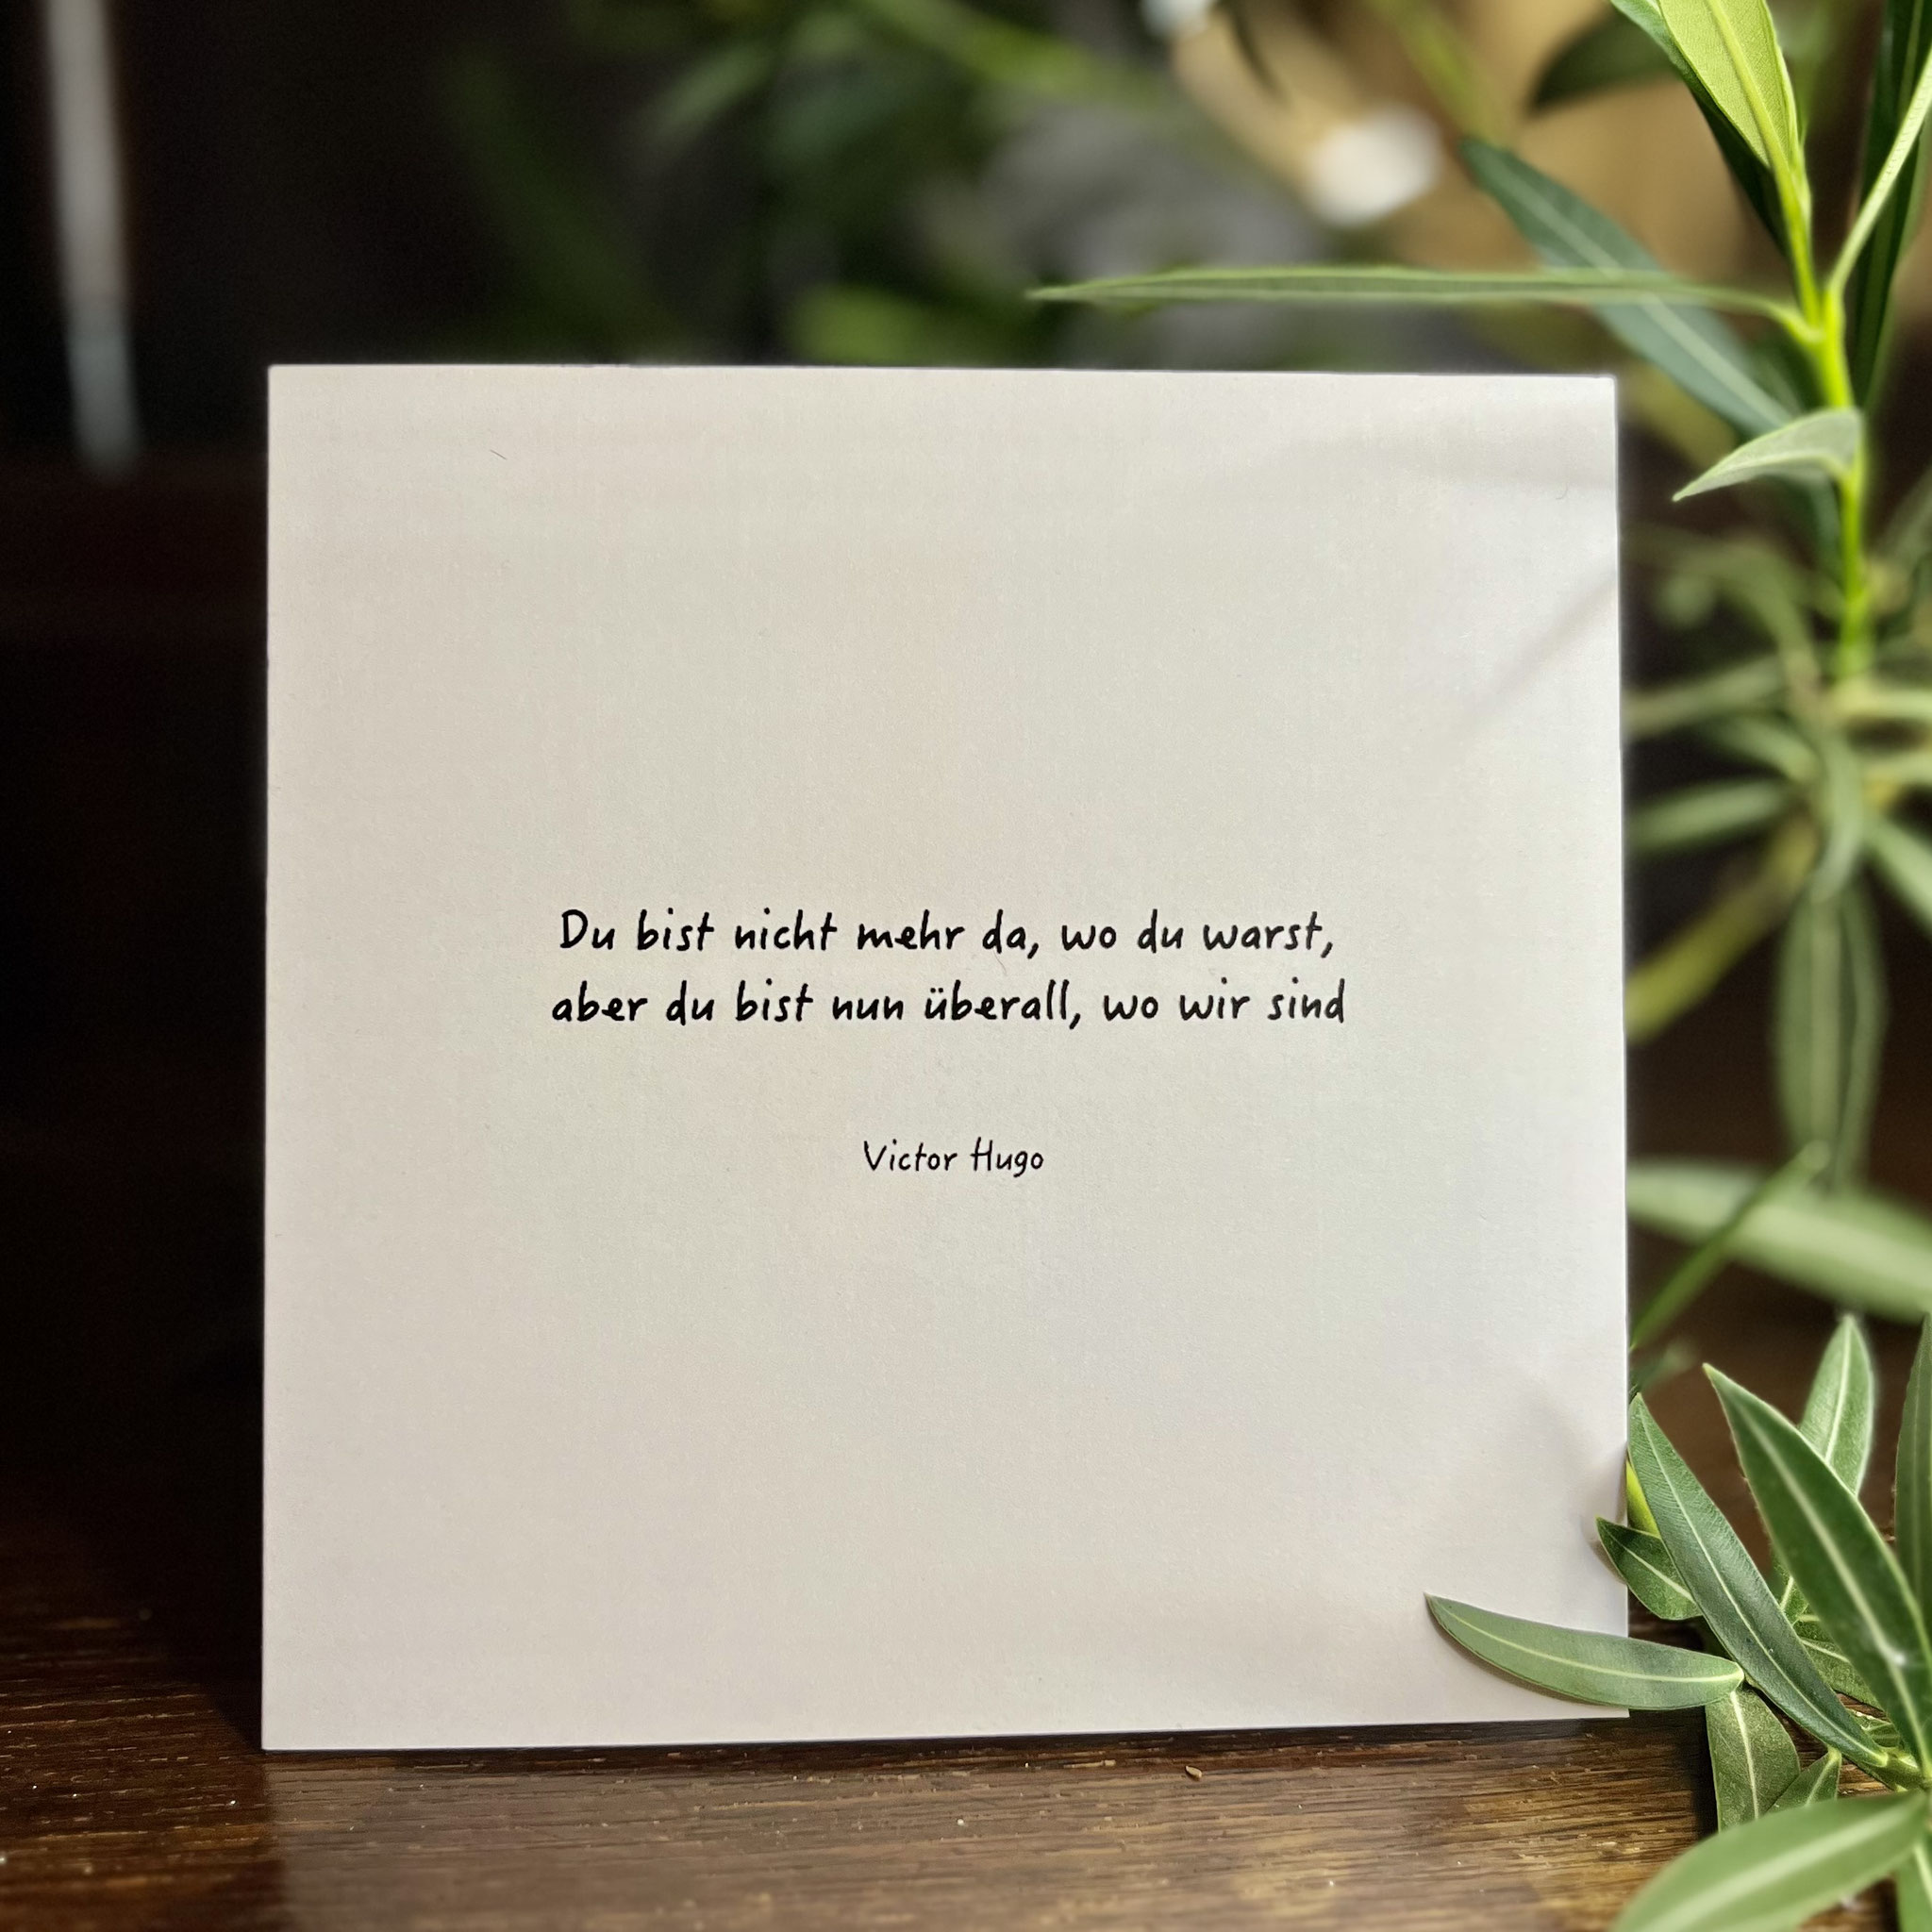 Du bist nicht mehr da, wo du warst,
aber du bist nun überall, wo wir sind
Victor Hugo